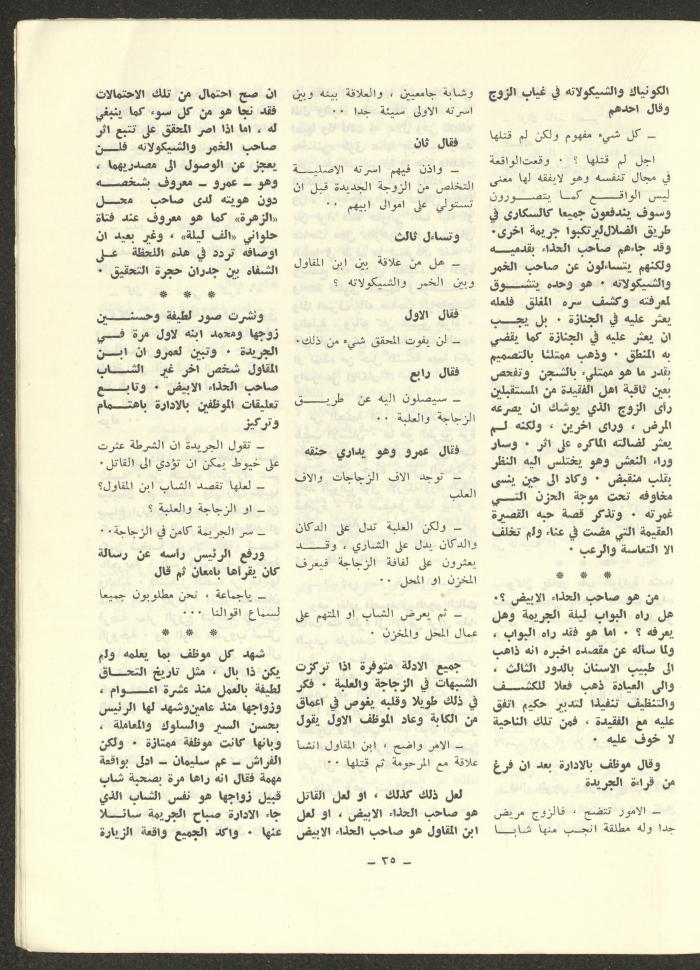 الكونياك والشيكولاته في غياب الزوج
وقال احدهم
ـ كل شيء مفهوم ولكن لم قتلها
اجل لم قتلها ؟ ٠ وقعت الواقعة
في مجال تنفسه وهو لايفقه لها معنى
ليس الواقع كما يتصورون
وسوف يندفعون جميعا كالسكارى في
طريق الضلال ليرتكبوا جريمة اخرى٠
وقد جاءهم صاحب الحذاء بقدميه
ولكنهم يتساءلون عن صاحب الخمر
والشيكولاته ٠ هو وحده يتشوق
لمعرفته وكشف سره المغلق فلعله
يعثر عليه في الجنازة ٠ بل يجب
ان يعثر عليه في الجنازة كما يقضي
به المنطق ٠ وذهب ممتلئا بالتصميم
بقدر ما هو ممتلىء بالشجن وتفحص
بعين ثاقبة اهل الفقيدة من المستقبلين
رأى الزوج الذي يوشك ان يصرعه
المرض ، ورأى اخرين ، ولكنه لم
يعثر لضالته الماكره على اثر ٠ وسار
وراء النعش وهو يختلس اليه النظر
بقلب منقبض ٠ وكاد الى حين ينسى
مخاوفه تحت موجة الحزن التي
غمرته ٠ وتذكر قصة حبه القصيرة
العقيمة التي مضت في عناء ولم تخلف
الا التعاسة والرعب ٠
* * *
من هو صاحب الحذاء الابيض ؟٠
هل راه البواب ليلة الجريمة وهل
يعرفه ؟ ٠ اما هو فقد راه البواب ،
ولما سأله عن مقصده اخبره انه ذاهب
الى طبيب الاسنان بالدور الثالث ،
والى العيادة ذهب فعلا للكشف
والتنظيف تنفيذا لتدبير حكيم اتفق
عليه مع الفقيدة ، فمن تلك الناحية
لا خوف عليه ٠
وقال موظف بالادارة بعد ان فرغ
من قراءة الجريدة
ـ الامور تتضح ، فالزوج مريض
جدا وله مطلقة انجب منها شابا
وشابة جامعيين ، والعلاقة بينه وبين
اسرته الاولى سيئة جدا ٠٠
فقال ثان
ـ واذن فيهم اسرته الاصلية
التخلص من الزوجة الجديدة قبل ان
تستولي على اموال ابيهم ٠٠
وتساءل ثالث
ـ هل من علاقة بين ابن المقاول
وبين الخمر والشيكولاته ؟
فقال الاول
ـ لن يفوت المحقق شيء من ذلك٠
فقال رابع
ـ سيصلون اليه عن طريق
الزجاجة والعلبة ٠٠
فقال عمرو وهو يداري حنقه
ـ توجد الاف الزجاجات والاف
العلب
ـ ولكن العلبة تدل على الدكان
والدكان يدل على الشاري ، وقد
يعثرون على لفافة الزجاجة فيعرف
المخزن او المحل ٠٠
ـ ثم يعرض الشاب او المتهم على
عمال المحل والمخزن ٠
جميع الادلة متوفرة اذا تركزت
الشبهات في الزجاجة والعلبة ٠ فكر
في ذلك طويلا وقلبه يغوص في اعماق
من الكابة وعاد الموظف الاول يقول
ـ الامر واضح ، ابن المقاول انشأ
علاقة مع المرحومة ثم قتلها ٠٠
لعل ذلك كذلك ، او لعل القاتل
هو صاحب الحذاء الابيض ، او لعل
ابن المقاول هو صاحب الحذاء الابيض
ان صح احتمال من تلك الاحتمالات
فقد نجا هو من كل سوء كما ينبغي
له ، اما اذا اصر المحقق على تتبع اثر
صاحب الخمر والشيكولاته فلن
يعجز عن الوصول الى مصدريهما ،
وهو ـ عمرو ـ معروف بشخصه
دون هويته لدى صاحب محل
«الزهرة» كما هو معروف عند فتاة
حلواني «الف ليلة» ، وغير بعيد ان
اوصافه تردد في هذه اللحظة على
الشفاه بين جدران حجرة التحقيق ٠
* * *
ونشرت صور لطيفة وحسنين
زوجها ومحمد ابنه لاول مرة في
الجريدة ٠ وتبين لعمرو ان ابن
المقاول شخص اخر غير الشاب
صاحب الحذاء الابيض ٠ وتابع
تعليقات الموظفين بالادارة باهتمام
وتركيز
ـ تقول الجريدة ان الشرطة عثرت
على خيوط يمكن ان تؤدي الى القاتل٠
ـ لعلها تقصد الشاب ابن المقاول؟
ـ او الزجاجة والعلبة ؟
ـ سر الجريمة كامن في الزجاجة٠٠
ورفع الرئيس رأسه عن رسالة
كان يقرأها بامعان ثم قال
ـ ياجماعة ، نحن مطلوبون جميعا
لسماع اقوالنا ٠٠٠
* * *
شهد كل موظف بما يعلمه ولم
يكن ذا بال ، مثل تاريخ التحاق
لطيفة بالعمل منذ عشرة اعوام ،
وزواجها منذ عامين وشهد لها الرئيس
بحسن السير والسلوك والمعاملة ،
وبانها كانت موظفة ممتازة ٠ ولكن
الفراش ـ عم سليمان ـ ادلى بواقعة
مهمة فقال انه راها مرة بصحبة شاب
قبيل زواجها هو نفس الشاب الذي
جاء الادارة صباح الجريمة سائلا
عنها ٠ واكد الجميع واقعة الزيارة
ـ ٣٥ ـ